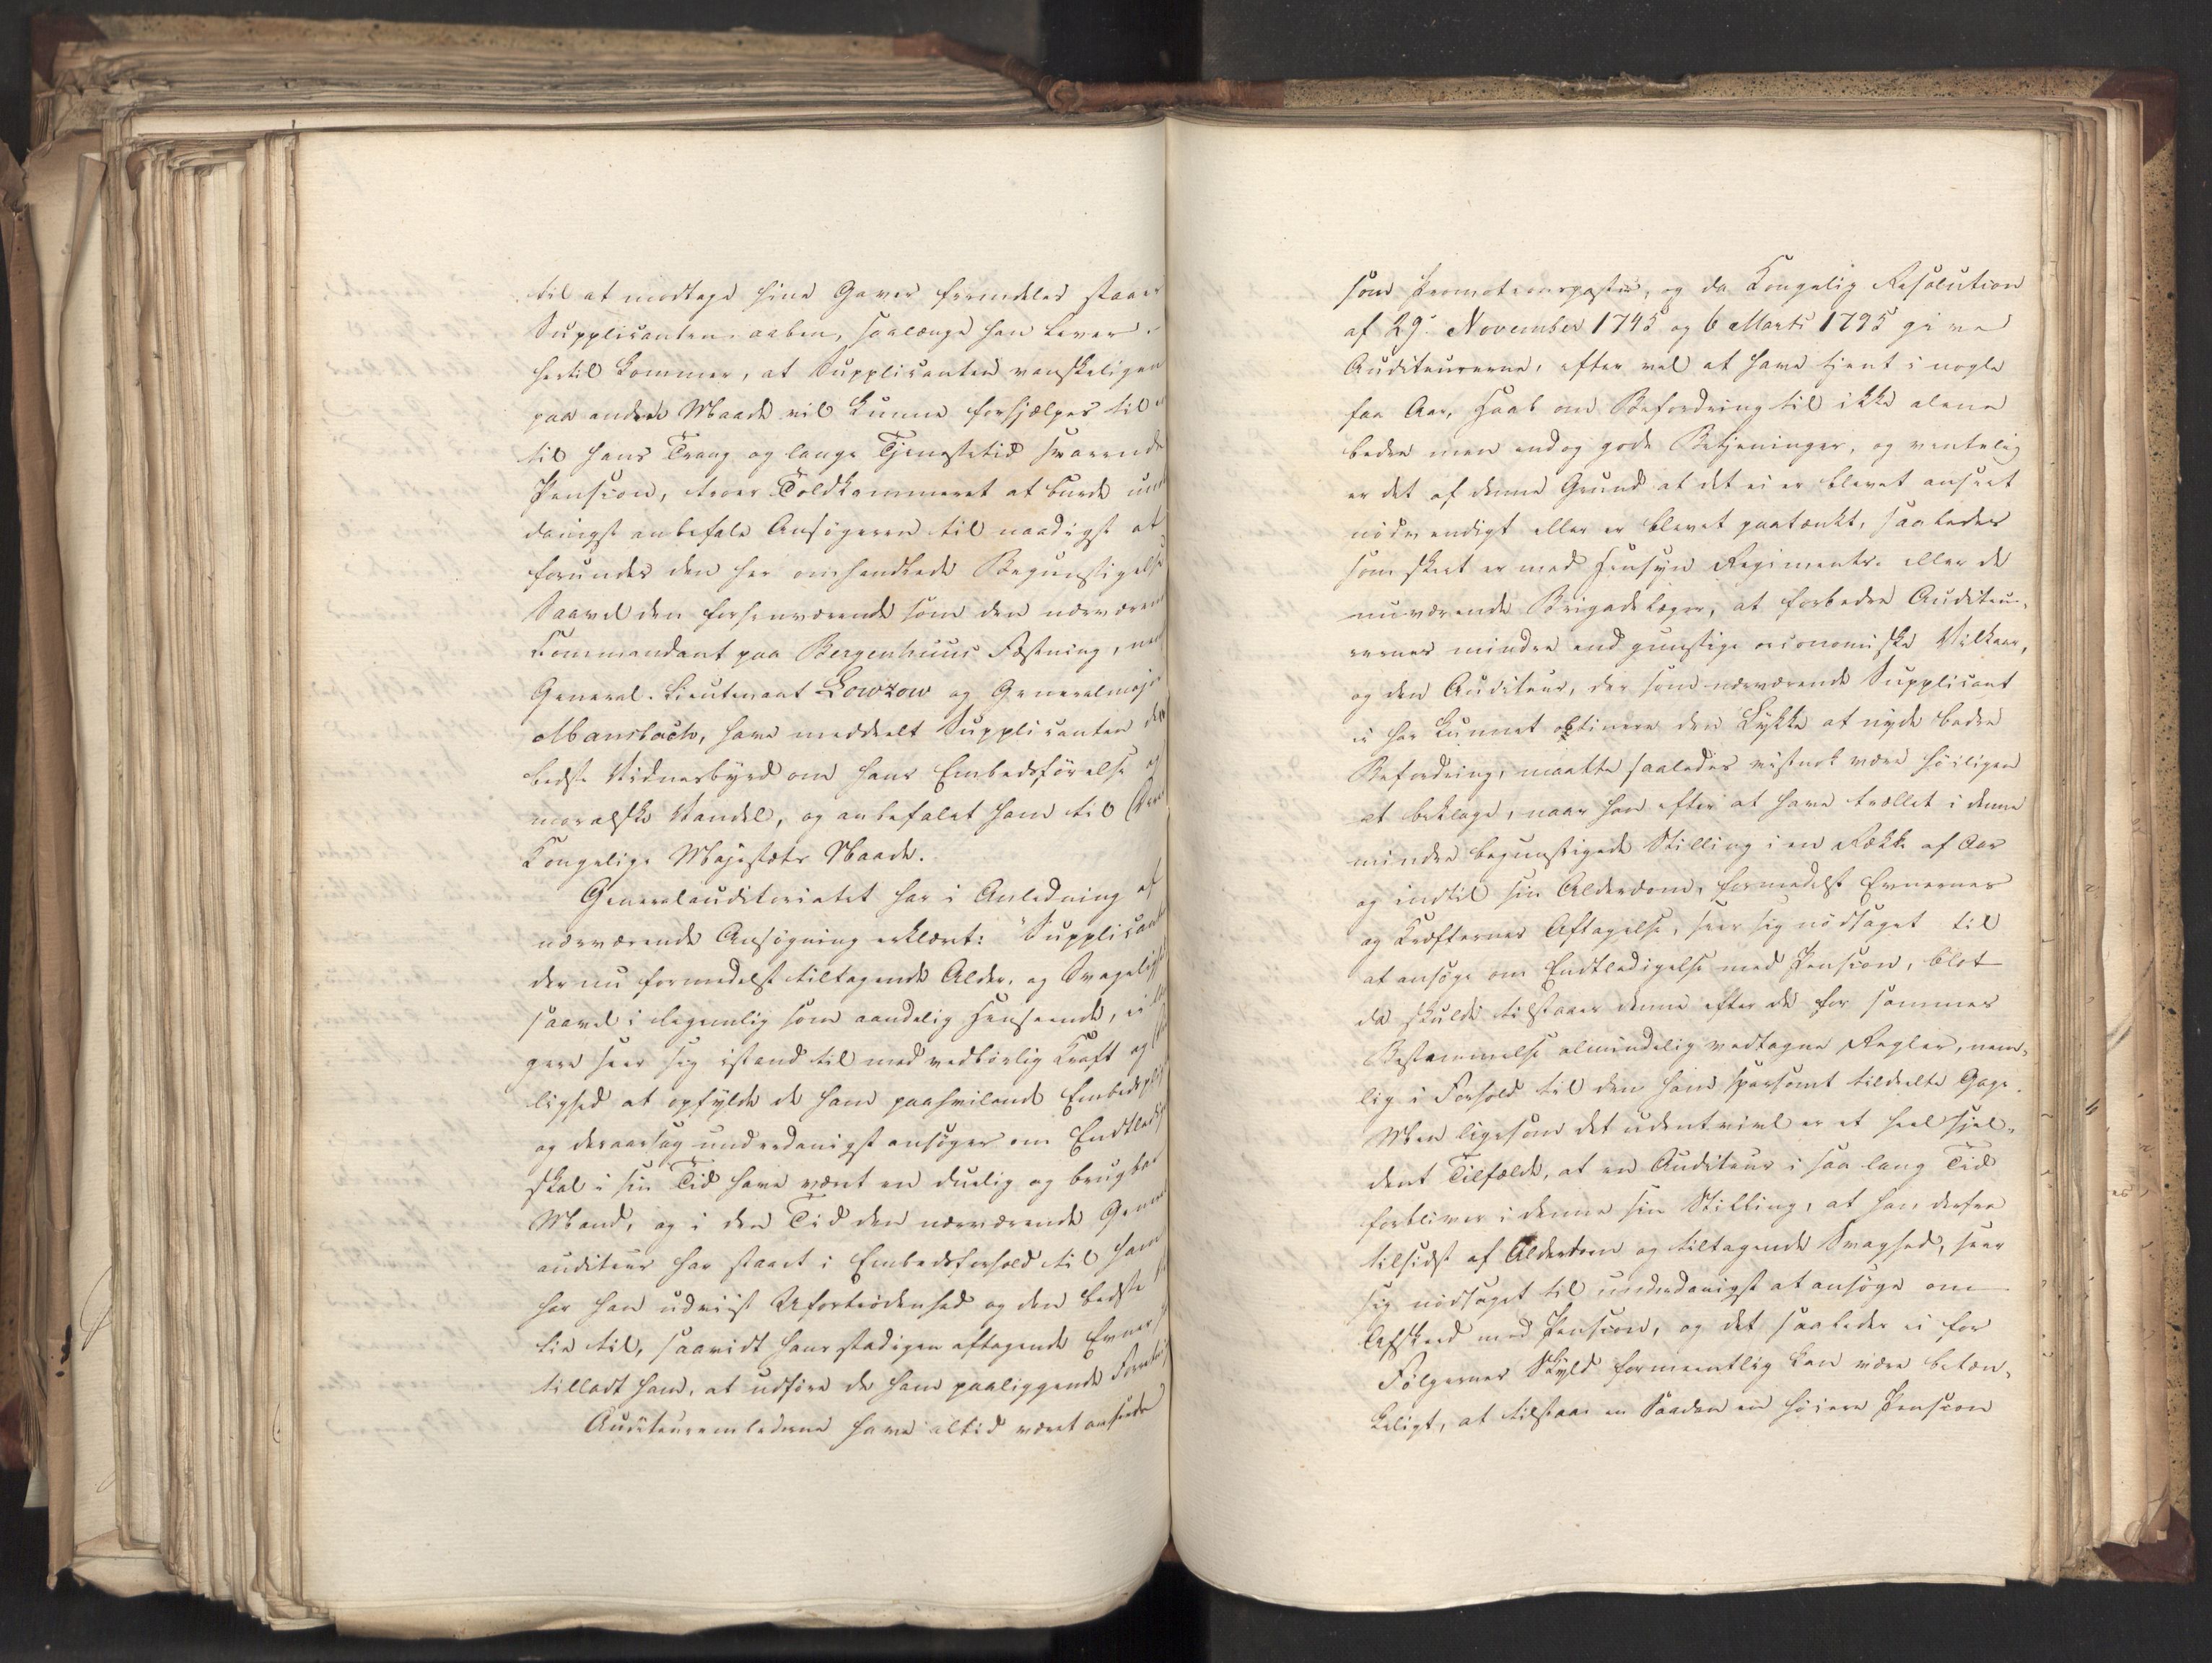 til at modtage hine Gaver fremdeles staaer
Supplicanten aaben, saalænge han lever.
hertil kommer, at Supplicanten vanskeligen
paa anden Maade vil kunne forhjælpes til
til hans Trang og lange Tjenestetid svarende
Pension, troer Toldkammeret at burde und
danigst anbefale Ansøgeren til naadigst at
forundes den her omhandlede Begunstigelse
Saavel den forhenværende som den nærværen
Commandant paa Bergenhuus Fæstning,
General-Lieutenant Lowzow og Generalmajo
Mansbach, have meddeelt Supplicanten de
bedste Vidnesbyrd om hans Embedsførelse og
moralske Vandel, og anbefalet ham til Der
Kongelige Majestæts Naade.
Generalauditoriatet har i Anledning af
nærværende Ansøgning erklært: "Supplicant
der nu formedelst tiltagende Alder, og Svagelighe
saavel i legemlig som aandelig Henseende, ei
gere seer sig istand til med vedbørlig Kraft og
lighed at opfylde de ham paahvilende Embedspl
og deraarsag underdanigst ansøger om Entledi
skal i sin Tid have været en duelig og brugbar
Mand, og i den Tid den nærværende Gener
auditeur har staaet i Embedsforhold til ham
har han udviist Ufortrødenhed og den bedste
lie til, saavidt hans stadigen aftagende Evner
tilladt ham, at udføre de ham paaliggende Forret
Auditeurembederne have altid været ansete
som Promotionsposter, og da Kongelig Resolution
af 29. November 1745 og 6 Marts 1795 give
Auditeurerne, efter vel at have tjent i nogle
faa Aar, Haab om Befordring til ikke alene
bedre men endog gode Betjeninger, og ventelig
er det af denne Grund at det ei er blevet anseet
nødvendigt eller er blevet paatænkt, saaledes
som skeet er med Hensyn Regiments- eller de
nuværende Brigadelæger, at forbedre Auditeu-
rernes mindre end gunstige oeconomiske Vilkaar,
og den Auditeur, der som nærværende Supplicant
ei har kunnet obtinere den Lykke at nyde bedre
Befordring, maatte saaledes vistnok være høiligen
at beklage, naar han efter at have trællet i denne
mindre begunstigede Stilling i en Række af Aar
og indtil sin Alderdom, formedelst Evnernes
og Kræfternes Aftagelse, seer sig nødsaget til
at ansøge om Entledigelse med Pension, blot
da skulde tilstaaes denne efter de for sammes
Bestemmelse almindelig vedtagne Regler, nem-
lig i Forhold til den ham sparsomt tildeelte Gage.
Men ligesom det udentvivl er et heel sjel-
dent Tilfælde, at en Auditeur i saa lang Tid
forbliver i denne sin Stilling, at han derfra
tilsidst af Alderdom og tiltagende Svaghed, seer
sig nødsaget til underdanigst at ansøge om
Afskeed med Pension, og det saaledes ei for
Følgernes Skyld formeentlig kan være betæn-
keligt, at tilstaae en Saadan en høiere Pension